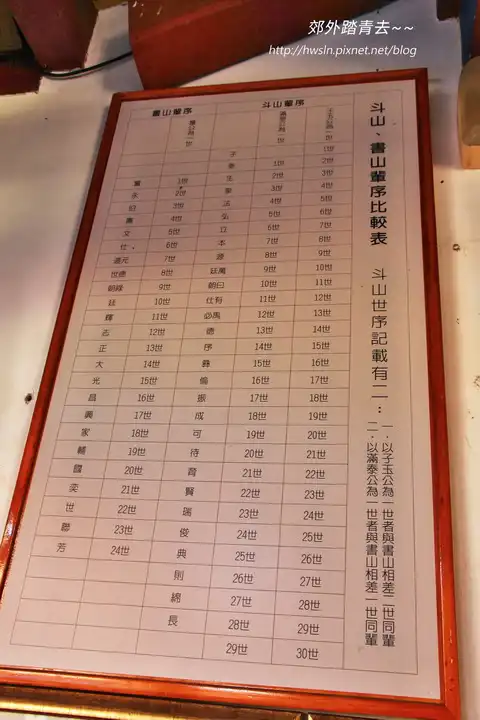 郊外踏青去~~
http://hwsln.pixnet.net/blog
斗山、書山輩序比較表
斗山世序記載有二：
一．以子玉公為一世者與書山相差二世同輩
二．以滿泰公為一世者與書山相差一世同輩
書山輩序 斗山輩序
公為一世 滿泰公為一世 子玉公為一世
子 1世
1世 2世
1世 2世 3世
永 2世 3世 4世
3世 法 4世 5世
4世 弘 5世 6世
文 5世 立 6世 7世
仕 6世 本 7世 8世
道元 7世 源 8世 9世
世德 8世 廷萬 9世 10世
朝祿 9世 朝曰 10世 11世
廷 10世 仕有 11世 12世
輝 11世 必禹 12世 13世
志 12世 德 13世 14世
正 13世 序 14世 15世
大 14世 15世 16世
光 15世 倫 16世 17世
昌 16世 振 17世 18世
興 17世 成 18世 19世
家 18世 可 19世 20世
輔 19世 待 20世 21世
國 20世 育 21世 22世
奕 21世 賢 22世 23世
世 22世 瑞 23世 24世
聯 23世 俊 24世 25世
芳 24世 典 25世 26世
則 26世 27世
綿 27世 28世
長 28世 29世
29世 30世